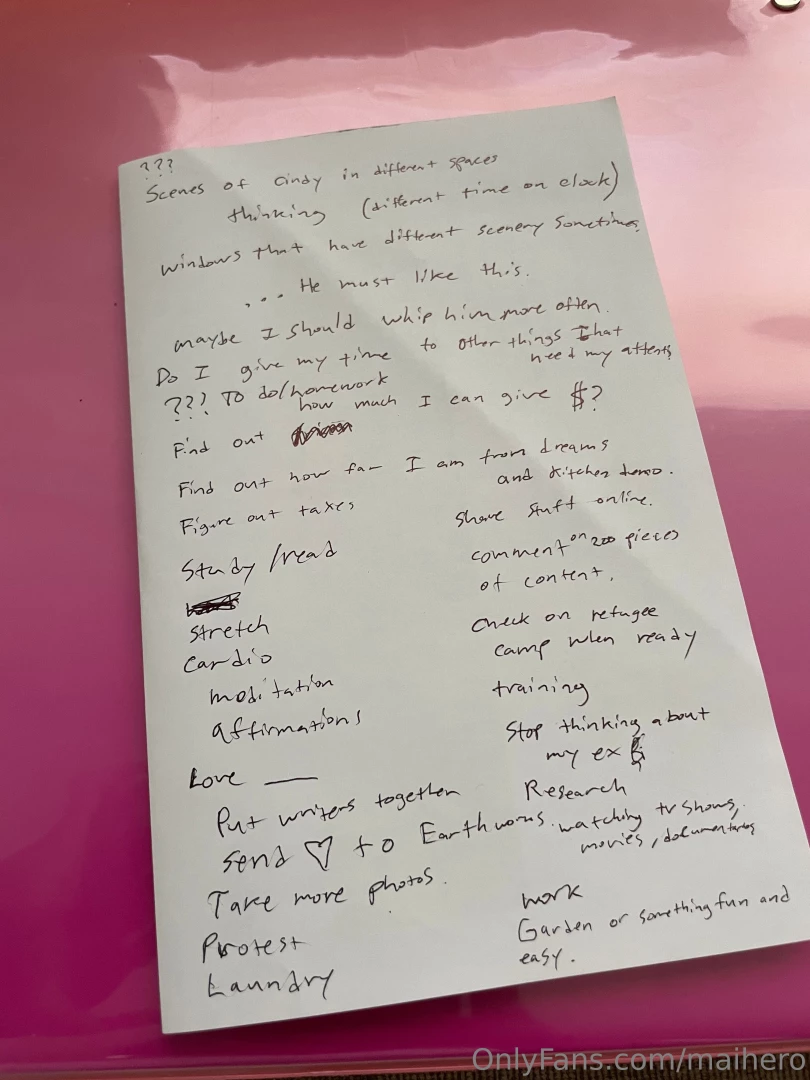 ???
Scenes of Cindy in different spaces
thinking (different time on clock)
windows that have different scenery sometimes
... He must like this.
maybe I should whip him more often.
Do I give my time to other things that
need my attents
??? To do/homework
how much I can give $?
Find out
Find out how far I am from dreams
and kitchen demo.
Figure out taxes
Study /read
stretch
cardio
moditation
affirmations
Love —
Put writers together
send ♡ to Earthworms.
Take more photos.
Protest
Laundry
Share stuff online.
comment on 200 pieces
of content.
Check on refugee
camp when ready
training
Stop thinking about
my ex
Research
watching tv shows,
movies, documentaries
work
Garden or something fun and
easy.
OnlyFans.com/maihero